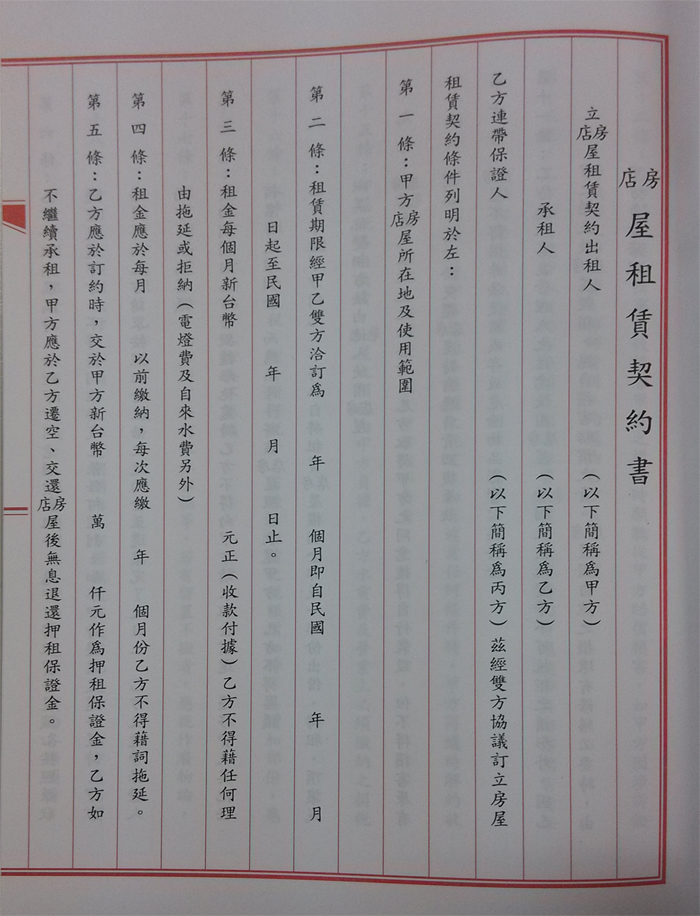 房店屋租賃契約書
立房店屋租賃契約出租人（以下簡稱為甲方）
承租人（以下簡稱為乙方）
乙方連帶保證人（以下簡稱為丙方）茲經雙方協議訂立房屋
租賃契約條件列明於左：
第一條：甲方房店屋所在地及使用範圍
第二條：租賃期限經甲乙雙方洽訂為 年 個月即自民國 年 月
日起至民國 年 月 日止。
第三條：租金每個月新台幣 元正（收款付據）乙方不得藉任何理
由拖延或拒納（電燈費及自來水費另外）
第四條：租金應於每月 以前繳納，每次應繳 年 個月份乙方不得藉詞拖延。
第五條：乙方應於訂約時，交於甲方新台幣 萬 仟元作為押租保證金，乙方如
不繼續承租，甲方應於乙方遷空、交還房店屋後無息退還押租保證金。